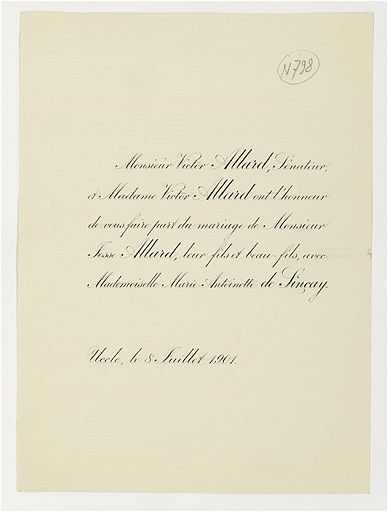 N798
Monsieur Victor Allard, Sénateur,
et Madame Victor Allard ont l'honneur
de vous faire part du mariage de Monsieur
Josse Allard, leur fils et beau-fils, avec
Mademoiselle Marie-Antoinette de Sinçay.
Uccle, le 8 Juillet 1901.